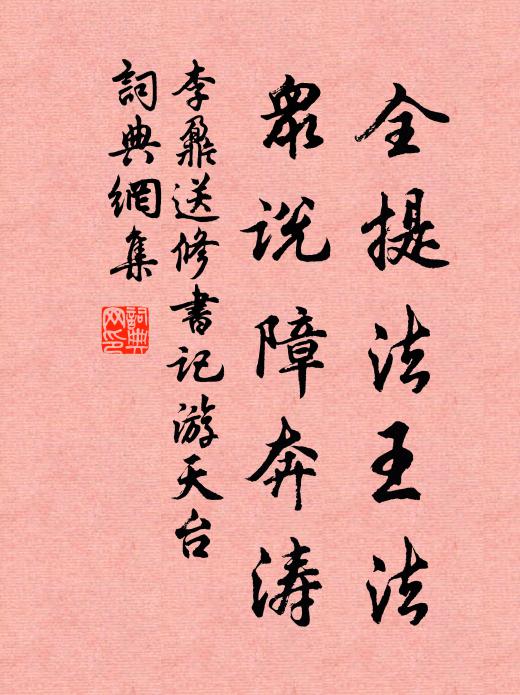 全提法王法
眾说障奔涛
李鼐送修書记游天台
詞典網集
詞典网印